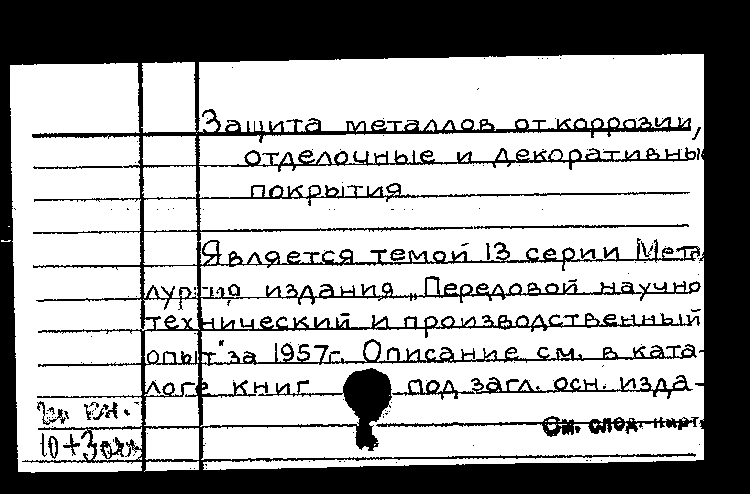 Защита металлов от коррозии,
отделочные и декоративны
покрытия
Является темой 13 серии Мета
лургия издания „Передовой научно
технический и производственный
опыт" за 1957г. Описание см. в ката-
логе книг под загл. осн. изда-
См. след. карт.
кн.
10+3